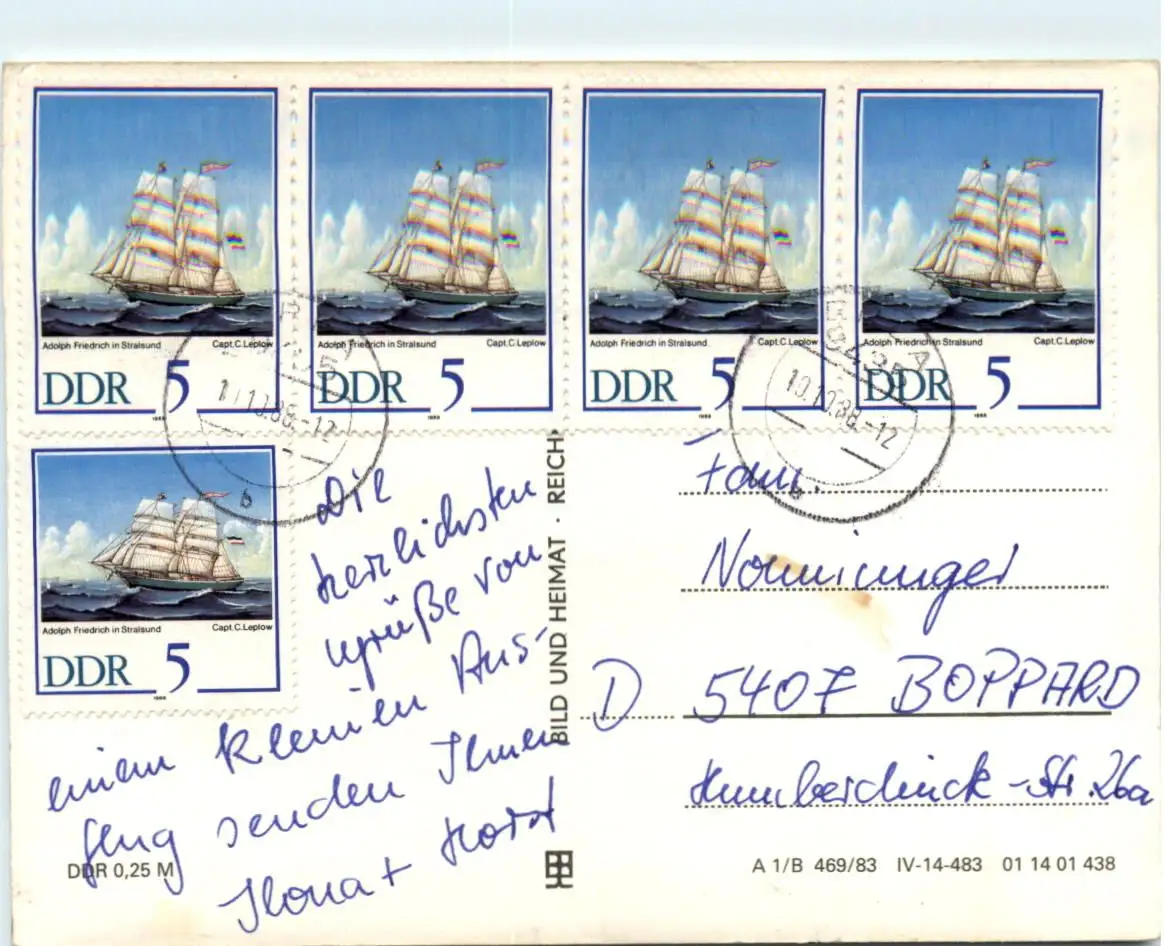 Adolph Friedrich in Stralsund Capt.C.Leplow
DDR 5
Adolph Friedrich in Stralsund Capt.C.Leplow
DDR 5
Adolph Friedrich in Stralsund Capt.C.Leplow
DDR 5
Adolph Friedrich in Stralsund Capt.C.Leplow
DDR 5
Adolph Friedrich in Stralsund Capt.C.Leplow
DDR 5
10.10.88.-12
b
10.10.88.-12
b
Die
herzlichsten
Grüße von
einem kleinen Aus-
flug senden Ihnen
Ilona + Horst
DDR 0,25 M
BILD UND HEIMAT · REICH
Fam.
D 5407 BOPPARD
Humberdinck-Str. 26a
A 1/B 469/83 IV-14-483 01 14 01 438